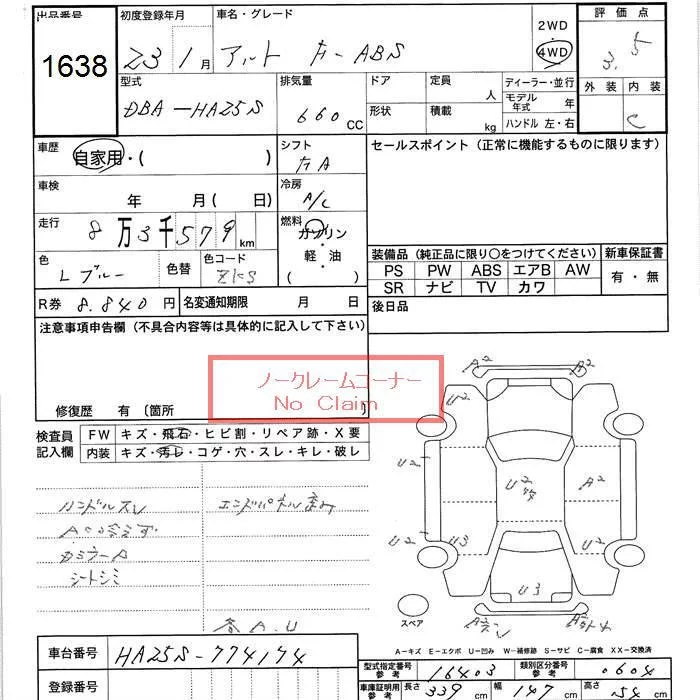 出品番号
1638
初度登録年月
23 1月
車名・グレード
アルト カーABS
2WD
4WD
評価点
3.5
外装 内装
C
型式
DBA-HA25S
排気量
660 CC
ドア
形状
定員 人
積載 kg
ディーラー・並行
モデル年式 年
ハンドル 左・右
車歴
自家用・( )
シフト
車検 年 月( 日)
冷房
A/C
走行
8万3千579km
燃料
ガソリン・軽油
( )
色
Lブルー
色替
色コード
ZKS
R券 8,840円
名変通知期限 月 日
セールスポイント(正常に機能するものに限ります)
装備品(純正品に限り○をつけてください)
新車保証書
PS PW ABS エアB AW
有・無
SR ナビ TV カワ
後日品
注意事項申告欄(不具合内容等は具体的に記入して下さい)
ノークレームコーナー
No Claim
修復歴 有(箇所 )
検査員記入欄
FW キズ・飛石・ヒビ割・リペア跡・X要
内装 キズ・汚レ・コゲ・穴・スレ・キレ・破レ
ハンドルスレ
シートシミ
A.U
A2
A2
U2
U2
U2
A2
U2
U3
U2
U3
スペア
A-キズ E-エクボ U-凹み W-補修跡 S-サビ C-腐食 XX-交換済
車台番号 HA25S-774174
登録番号
型式指定番号 参考 16403
類別区分番号 参考 0604
車庫証明用 参考 長さ 339cm 幅 147cm 高さ cm